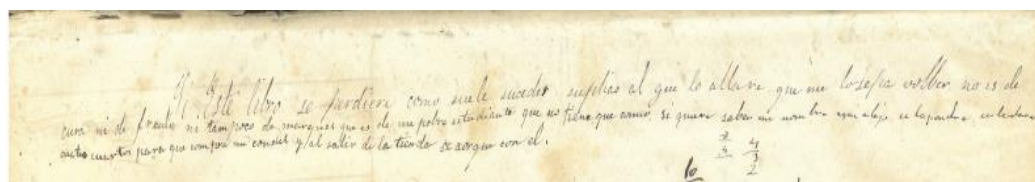 Si Este libro se perdiere como suele suceder suplico al que lo allare que me losepa volber no es de
cura ni de fraile ni tampoco de marques que es de un pobre estudiante que no tiene que comer, si quiere saber mi nombre
cuatro cuartos para que compre un y al salir de la tienda se aorque con el.
2 4
4 3
2
10